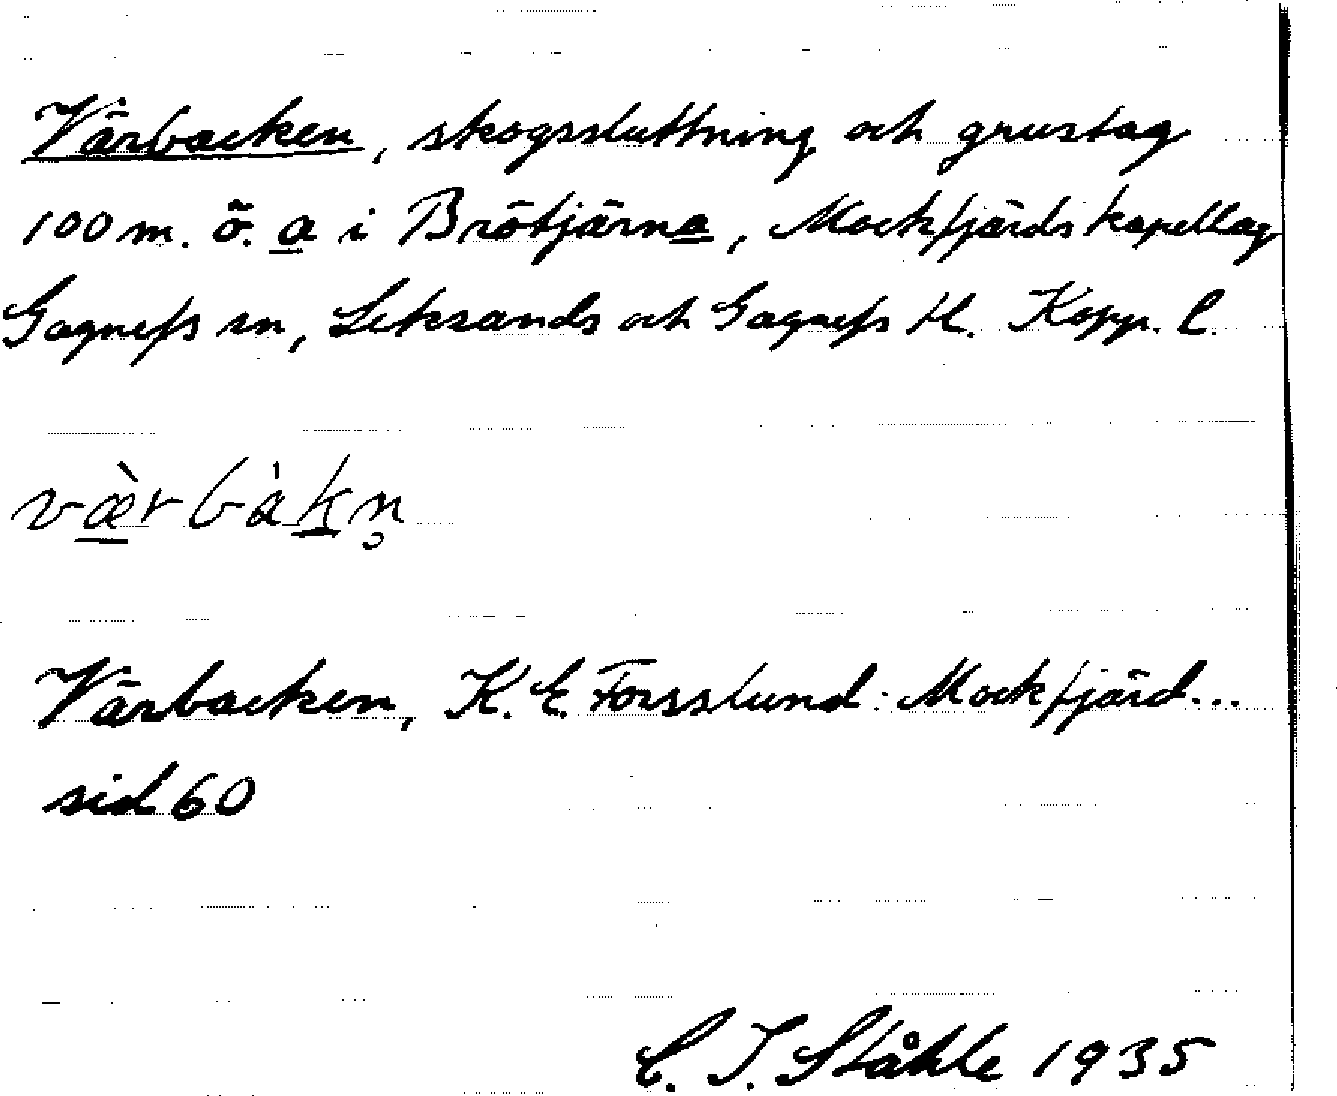 Värbacken, skogssluttning och grustag
100 m. ö. a i Brötjärna, Mockfjärds kapellag
Gagnefs sn, Leksands och Gagnefs tl. Kopp. l.
væ̀rbàkn̥
Värbacken, K. E. Forsslund: Mockfjärd...
sid 60
C. I. Ståhle 1935